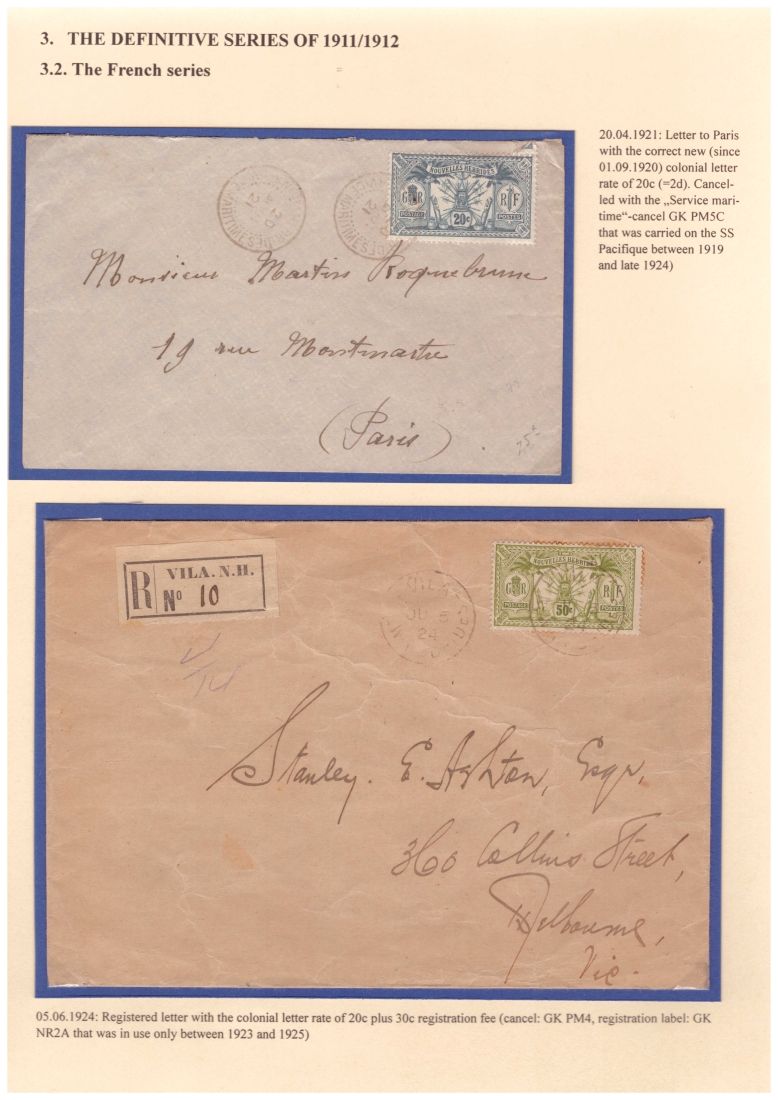 3. THE DEFINITIVE SERIES OF 1911/1912
3.2. The French series
20.04.1921: Letter to Paris
with the correct new (since
01.09.1920) colonial letter
rate of 20c (=2d). Cancel-
led with the „Service mari-
time“-cancel GK PM5C
that was carried on the SS
Pacifique between 1919
and late 1924)
NOUVELLES HEBRIDES
G R
R F
POSTAGE
20c
POSTES
Monsieur Martin Roquebrune
19 rue Montmartre
(Paris)
25.-
R
VILA. N.H.
No 10
VILA
JU 5
24
NOUVELLES HEBRIDES
G R
R F
POSTAGE
50c
POSTES
Stanley. E. Ashton, Esqr,
360 Collins Street,
Melbourne,
Vic.
05.06.1924: Registered letter with the colonial letter rate of 20c plus 30c registration fee (cancel: GK PM4, registration label: GK
NR2A that was in use only between 1923 and 1925)